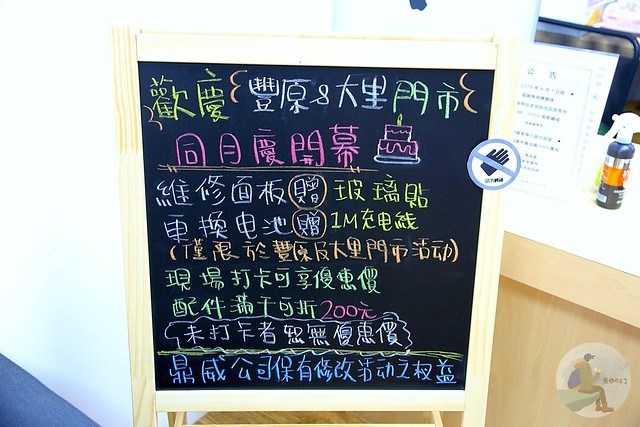 歡慶{豐原&大里門市}
同月慶開幕
維修面板贈玻璃貼
更換电池贈1M充电線
(僅限於豐原及大里門市活动)
現場打卡可享優惠價
配件滿千可折200元
未打卡者恕無優惠價
鼎威公司保有修改活动之权益
公告